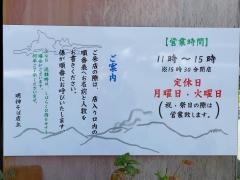 【営業時間】
11時〜15時
※15時30分閉店
定休日
月曜日・火曜日
(祝・祭日の際は
営業致します。)
ご案内
ご来店の際は、店入り口内の
順番表へお名前と人数を
お書きください。
係が順番にお呼びいたします
明神そば店主